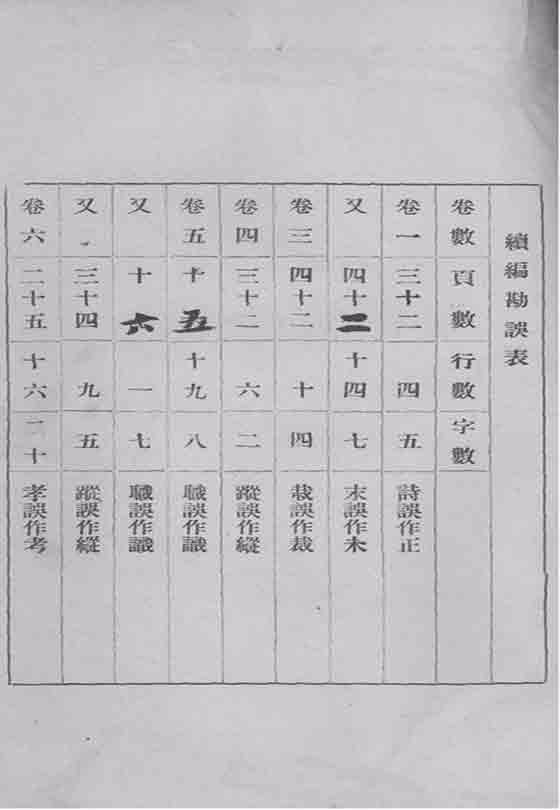 續編勘誤表
卷數 頁數 行數 字數
卷一 三十二 四 五 詩誤作正
又 四十二 十四 七 末誤作木
卷三 四十二 十 四 栽誤作裁
卷四 三十二 六 二 蹤誤作縱
卷五 十五 十九 八 職誤作識
又 十六 一 七 職誤作識
又 三十四 九 五 蹤誤作縱
卷六 二十五 十六 二十 孝誤作考